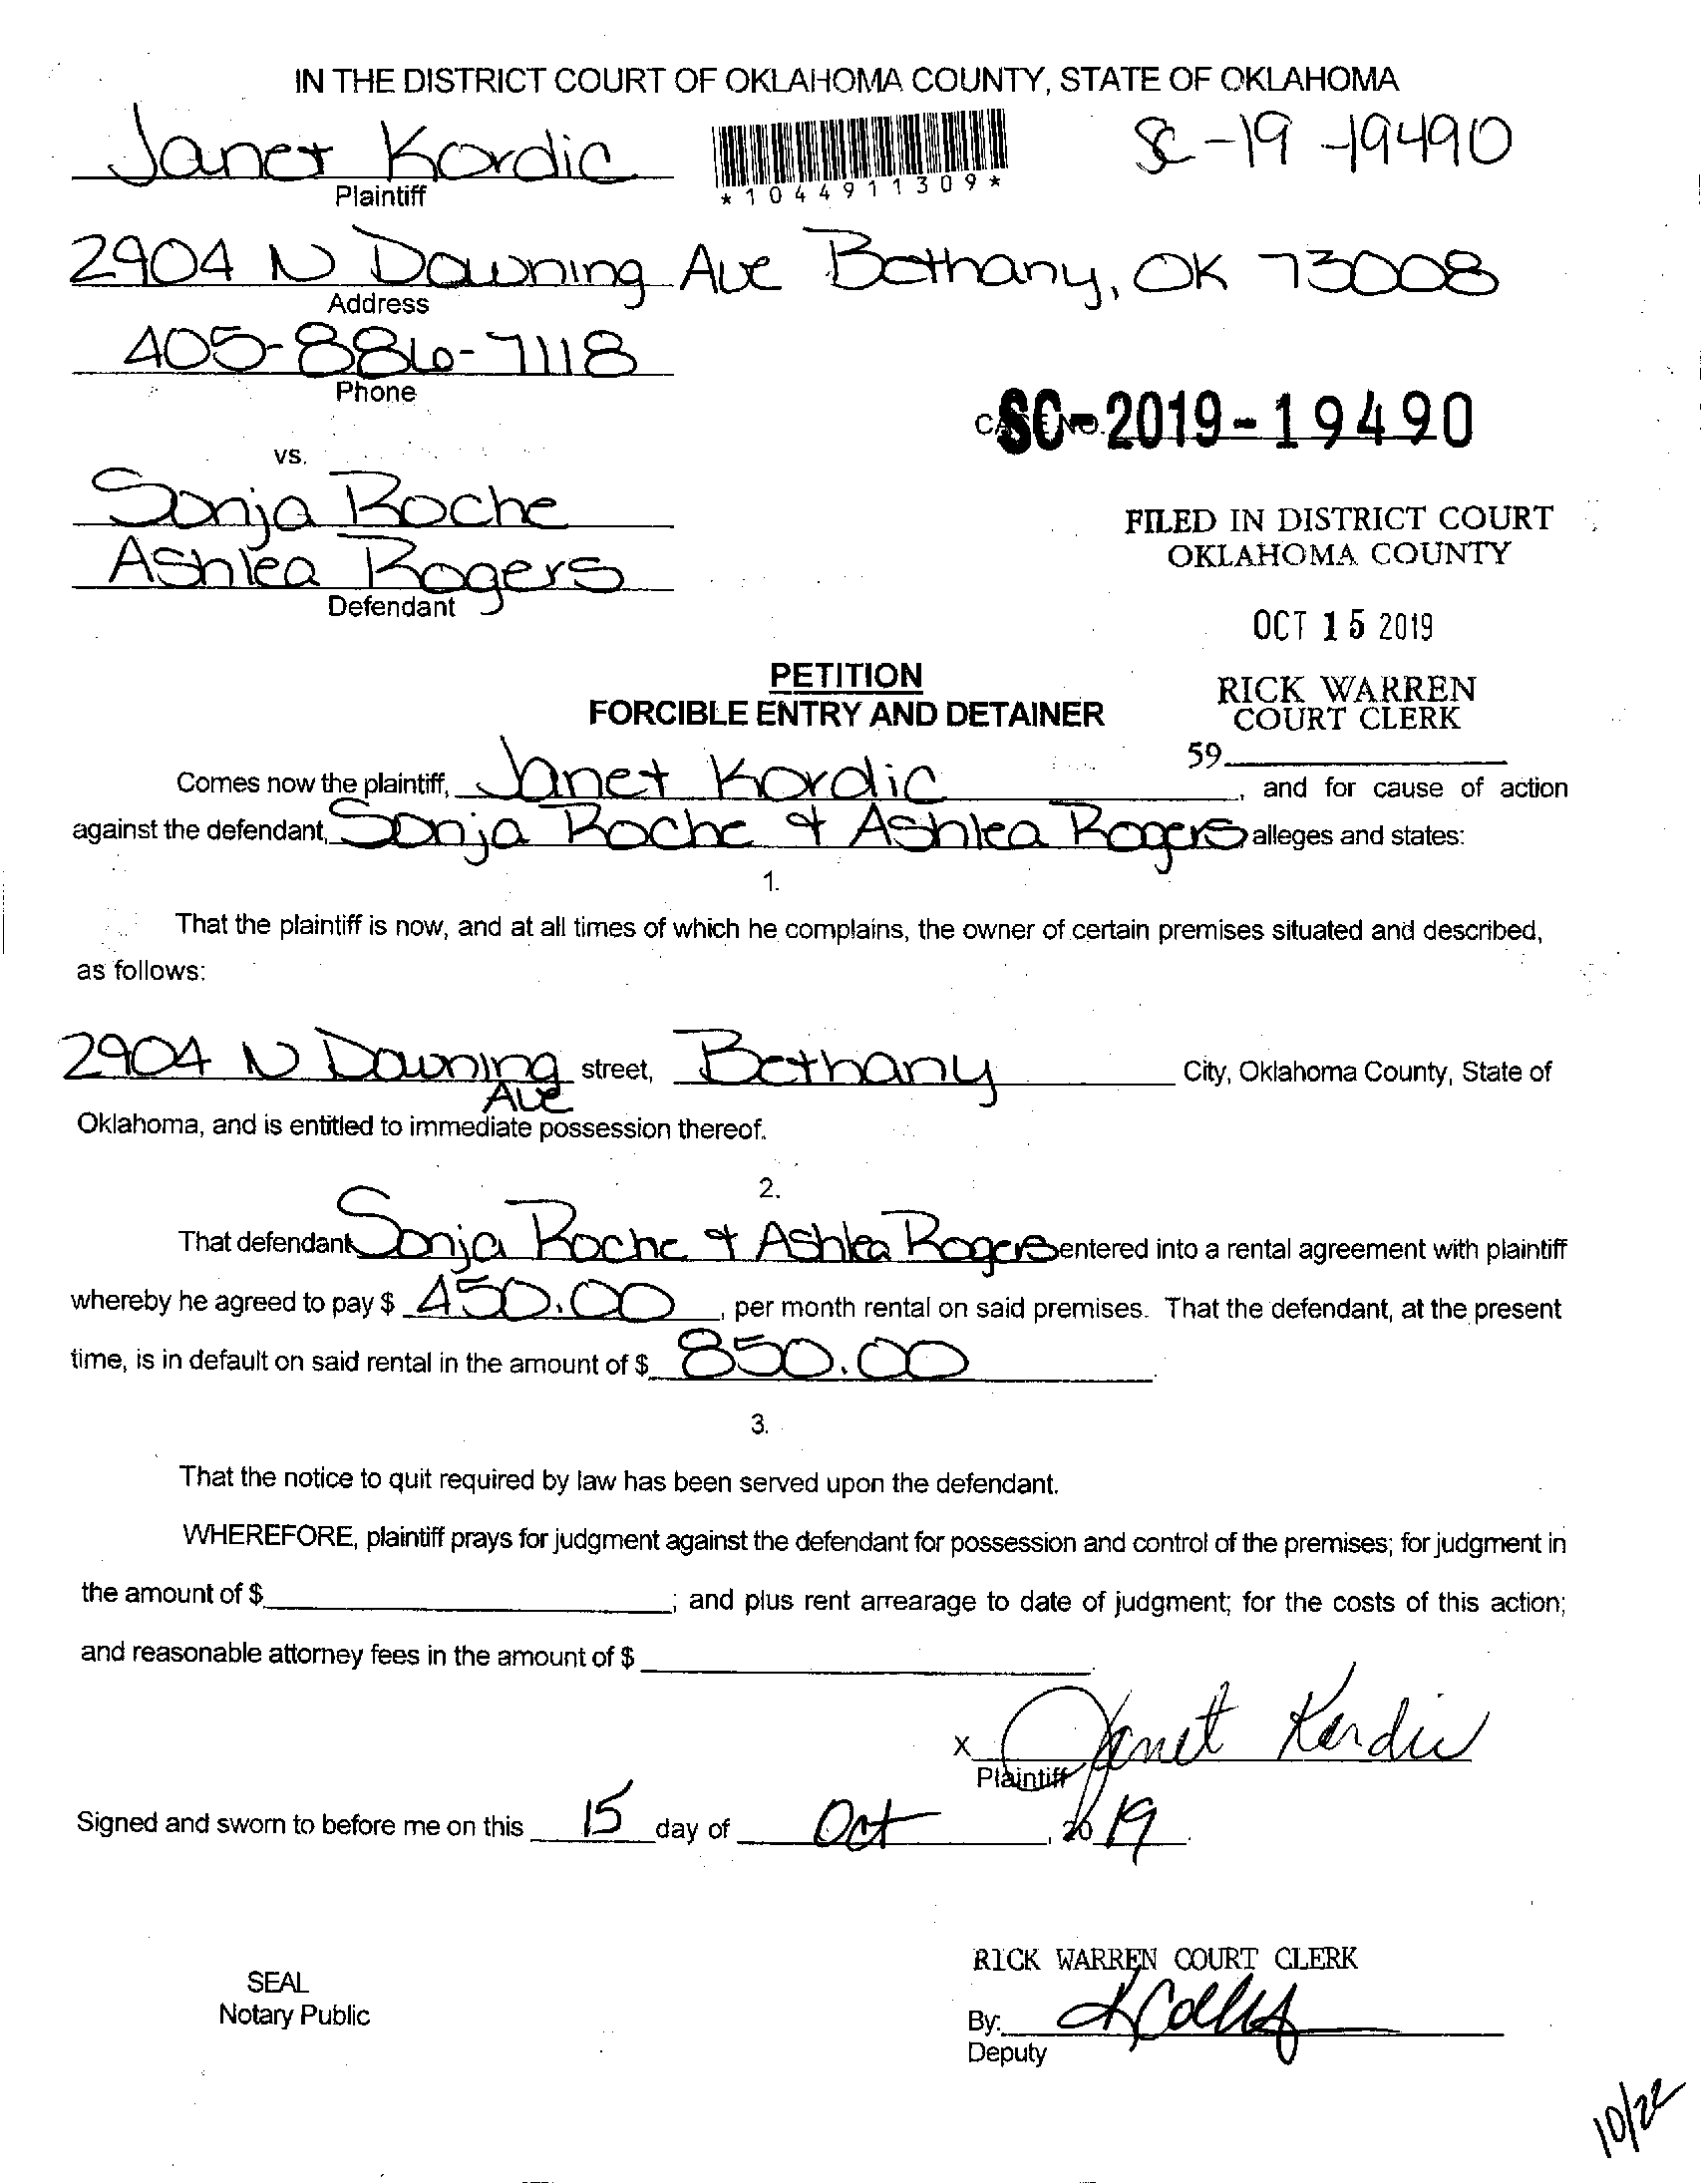 IN THE DISTRICT COURT OF OKLAHOMA COUNTY, STATE OF OKLAHOMA
Janet Kordic
SC-19-19490
*1044911309*
Plaintiff
2904 N Downing Ave Bethany, OK 73008
Address
405-886-7118
Phone
CASE NO. SC-2019-19490
vs.
Sonja Roche
Ashlea Rogers
Defendant
FILED IN DISTRICT COURT
OKLAHOMA COUNTY
OCT 15 2019
PETITION
FORCIBLE ENTRY AND DETAINER
RICK WARREN
COURT CLERK
59
Comes now the plaintiff, Janet Kordic, and for cause of action
against the defendant, Sonja Roche & Ashlea Rogers alleges and states:
1.
That the plaintiff is now, and at all times of which he complains, the owner of certain premises situated and described,
as follows:
2904 N Downing Ave street, Bethany City, Oklahoma County, State of
Oklahoma, and is entitled to immediate possession thereof.
2.
That defendant Sonja Roche & Ashlea Rogers entered into a rental agreement with plaintiff
whereby he agreed to pay $ 450.00, per month rental on said premises. That the defendant, at the present
time, is in default on said rental in the amount of $ 850.00
3.
That the notice to quit required by law has been served upon the defendant.
WHEREFORE, plaintiff prays for judgment against the defendant for possession and control of the premises; for judgment in
the amount of $ ; and plus rent arrearage to date of judgment; for the costs of this action;
and reasonable attorney fees in the amount of $
X Janet Kordic
Plaintiff
Signed and sworn to before me on this 15 day of Oct, 2019.
RICK WARREN COURT CLERK
SEAL
Notary Public
By:
Deputy
10/22